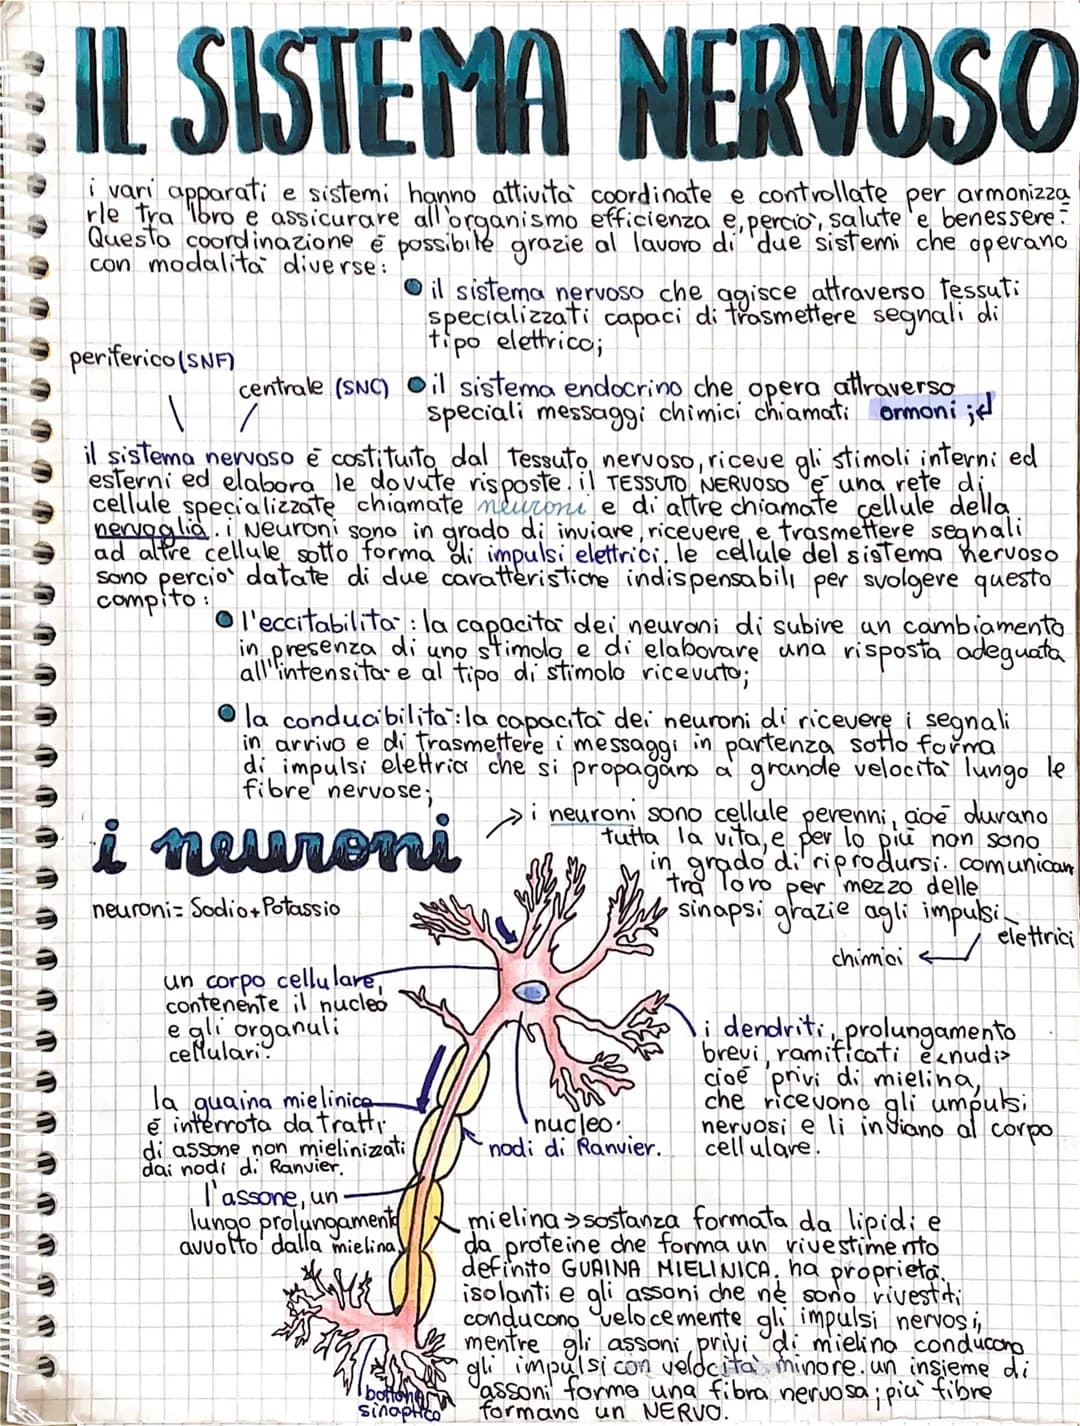 IL SISTEMA NERVOSO
i vari apparati e sistemi hanno attività coordinate e controllate per armonizza
rle tra loro e assicurare all'organismo efficienza e, perciò, salute e benessere.
Questa coordinazione è possibile grazie al lavoro di due sistemi che operano
con modalità diverse:
il sistema nervoso che agisce attraverso tessuti
specializzati capaci di trasmettere segnali di
tipo elettrico;
periferico (SNF)
centrale (SNC)
il sistema endocrino che opera attraverso
speciali messaggi chimici chiamati ormoni;
il sistema nervoso è costituito dal tessuto nervoso, riceve gli stimoli interni ed
esterni ed elabora le dovute risposte. il TESSUTO NERVOSO è una rete di
cellule specializzate chiamate neuroni e di altre chiamate cellule della
nervoglia. i Neuroni sono in grado di inviare, ricevere e trasmettere segnali
ad altre cellule sotto forma di impulsi elettrici. le cellule del sistema nervoso
sono perciò datate di due caratteristiche indispensabili per svolgere questo
compito:
l'eccitabilità: la capacità dei neuroni di subire un cambiamento
in presenza di uno stimolo e di elaborare una risposta adeguata
all'intensità e al tipo di stimolo ricevuto;
la conducibilità: la capacità dei neuroni di ricevere i segnali
in arrivo e di trasmettere i messaggi in partenza sotto forma
di impulsi elettrici che si propagano a grande velocità lungo le
fibre nervose;
i neuroni
→ i neuroni sono cellule perenni, cioè durano
tutta la vita, e per lo più non sono
in grado di riprodursi. comunican
tra loro per mezzo delle
sinapsi grazie agli impulsi
elettrici
chimici
neuroni= Sodio+Potassio
un corpo cellulare,
contenente il nucleo
e gli organuli
cellulari.
la guaina mielinica
è interrota da tratti
di assone non mielinizzati
dai nodi di Ranvier.
l'assone, un
lungo prolungament
avvolto dalla mielina
nucleo.
nodi di Ranvier.
i dendriti, prolungamento
brevi, ramificati e <nudi>
cioè privi di mielina,
che ricevono gli umpulsi
nervosi e li inviano al corpo
cellulare.
mielina → sostanza formata da lipidi e
da proteine che forma un rivestimento
definito GUAINA MIELINICA. ha proprietà
isolanti e gli assoni che nè sono rivestiti
conducono velocemente gli impulsi nervosi,
mentre gli assoni privi di mielina conducono
gli impulsi con velocità minore. un insieme di
assoni forma una fibra nervosa; più fibre
formano un NERVO.
bottone
sinaptico